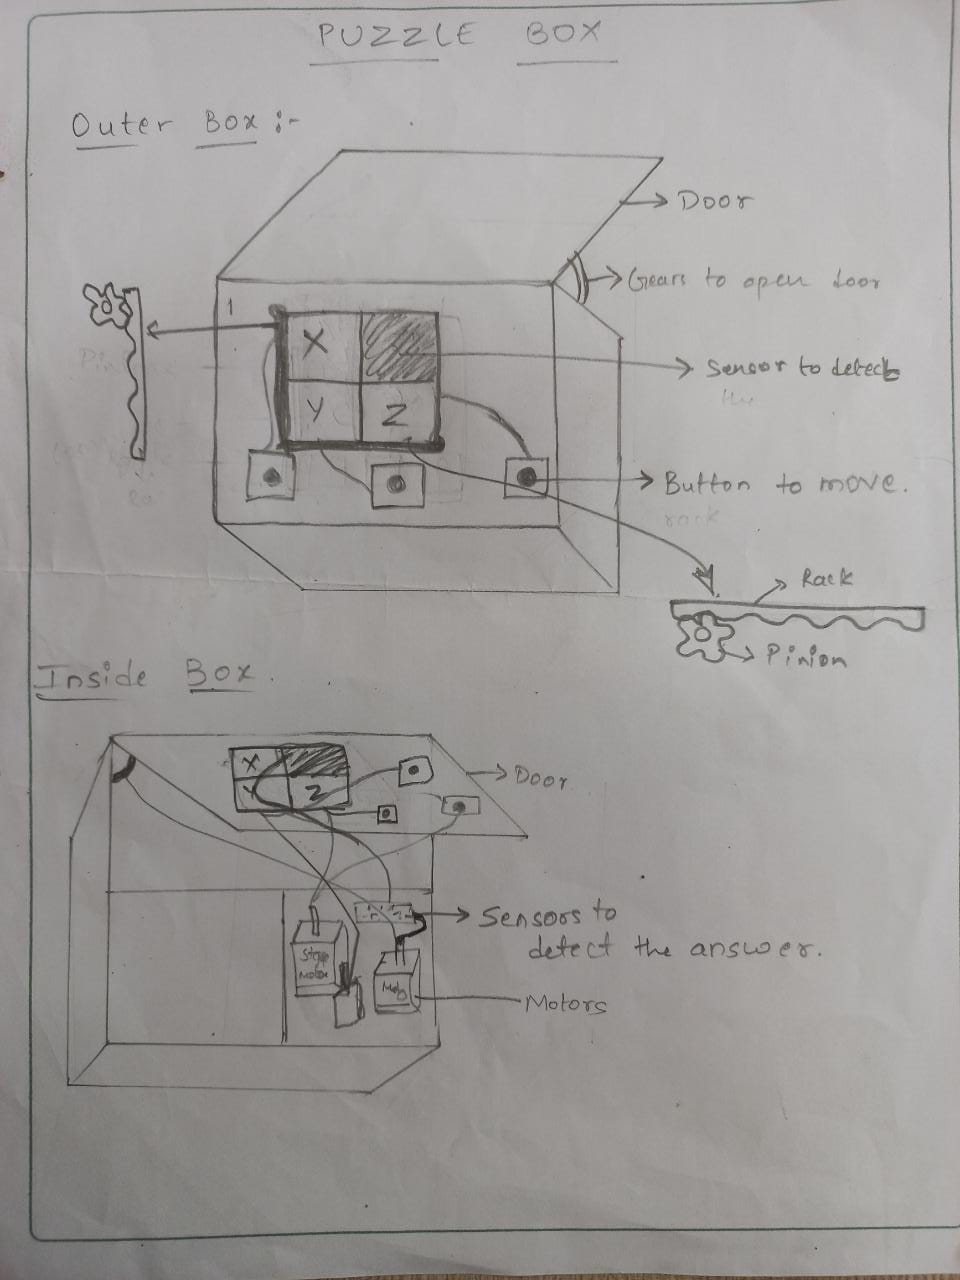 PUZZLE BOX
Outer Box :-
Door
Gears to open door
1
X
Sensor to detect
the
Y Z
Button to move.
rack
Rack
Pinion
Inside Box.
X
Door
Y Z
Sensors to
detect the answer.
Motor
Motors